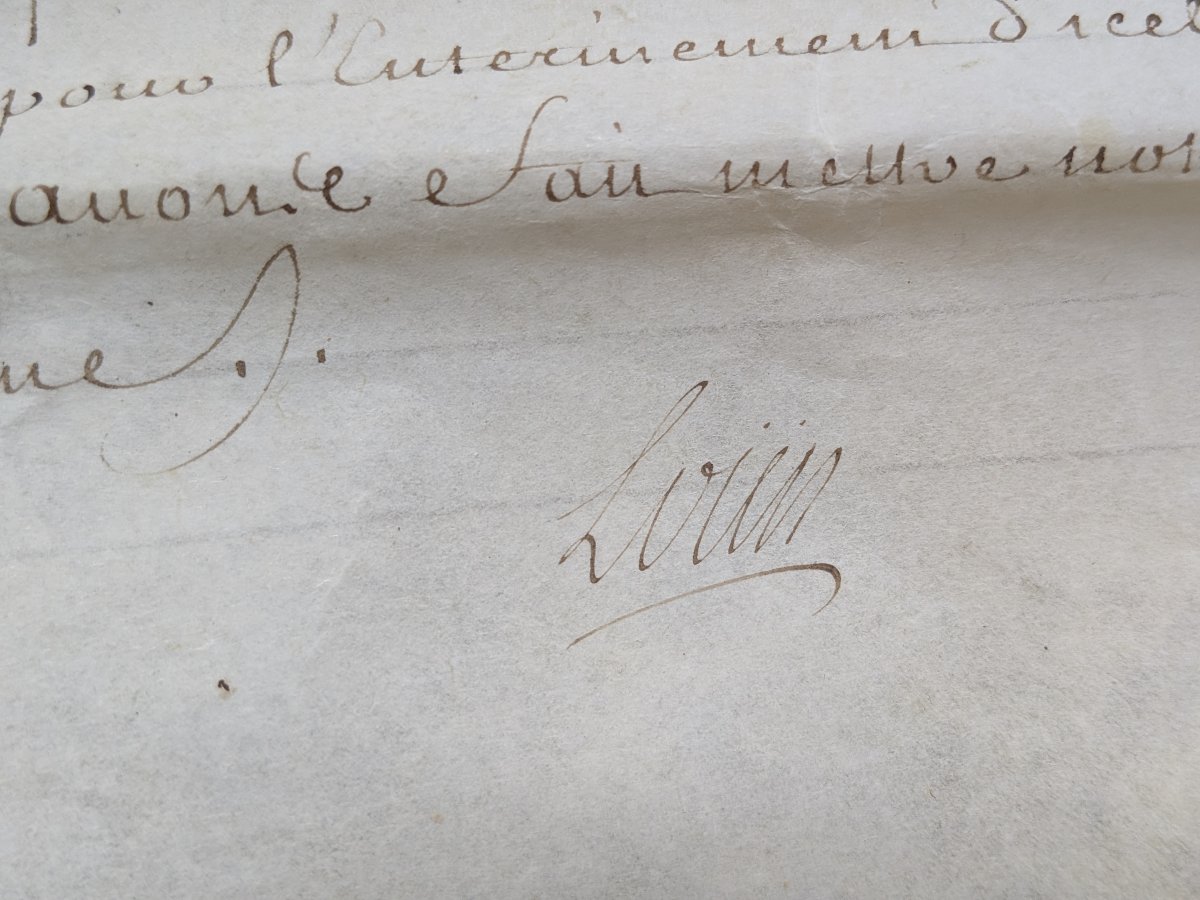 pour l'Enterinement d'icel
auons et fait mettre not
me
Loüin